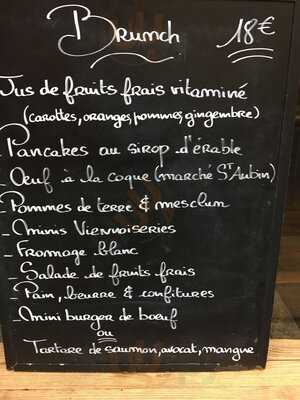 Brunch 18€
Jus de fruits frais vitaminé
(carottes, oranges, pommes, gingembre)
- Pancakes au sirop d'érable
- Oeuf à la coque (marché St Aubin)
- Pommes de terre & mesclum
- Minis Viennoiseries
- Fromage blanc
- Salade de fruits frais
- Pain, beurre & confitures
- Mini burger de bœuf
ou
Tartare de saumon, avocat, mangue